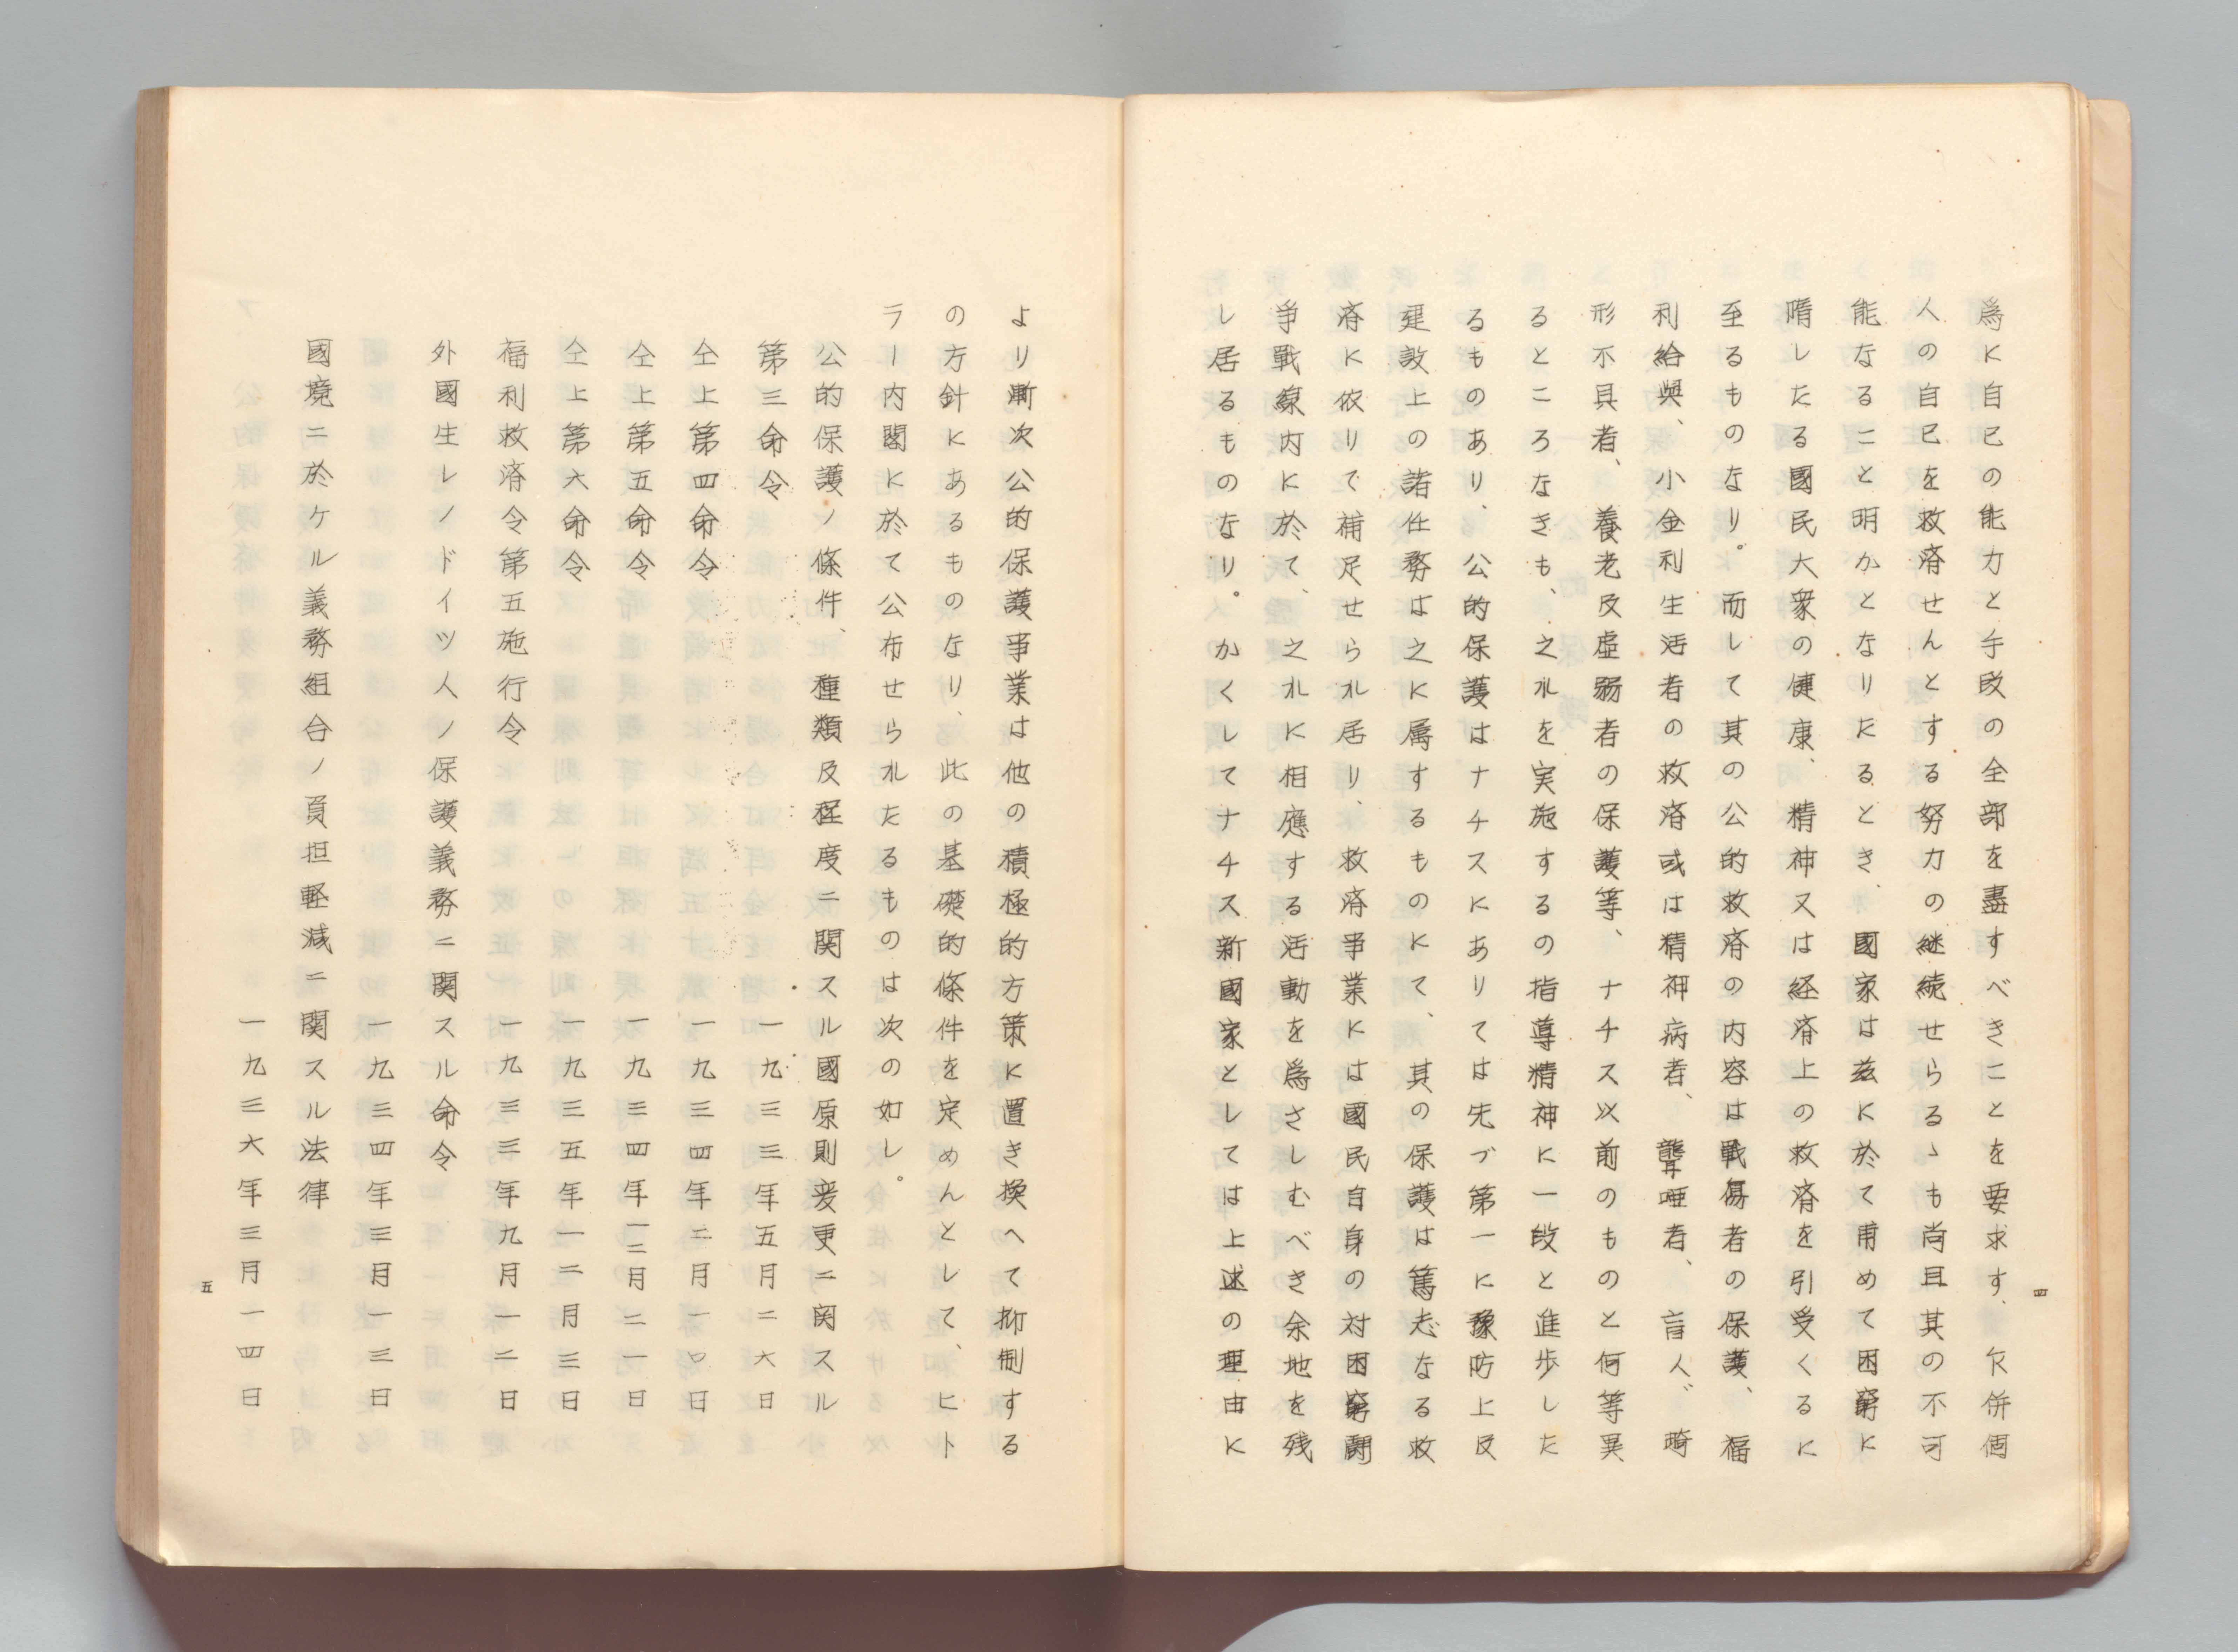 爲に自己の能力と手段の全部を盡すべきことを要求す、欠併個
人の自己を救済せんとする努力の継続せらるゝも尚且其の不可
能なること明かとなりたるとき、國家は茲に於て甫めて困窮に
陏したる國民大衆の健康、精神又は経済上の救済を引受くるに
至るものなり。而して其の公的救済の内容は戰傷者の保護、福
利給與、小金利生活者の救済或は精神病者、聾唖者、盲人、畸
形不具者、養老及虚弱者の保護等、ナチス以前のものと何等異
るところなきも、之れを実施するの指導精神に一段と進歩した
るものあり、公的保護はナチスにありては先づ第一に豫防上及
建設上の諸任務は之に属するものにて、其の保護は篤志なる救
済に依りて補足せられ居り、救済事業には國民自身の対困窮闘
爭戰線内に於て、之れに相應する活動を爲さしむべき余地を残
し居るものなり。かくしてナチス新國家としては上述の理由に
四
より漸次公的保護事業は他の積極的方策に置き換へて抑制する
の方針にあるものなり、此の基礎的條件を定めんとして、ヒト
ラー内閣に於て公布せられたるものは次の如し。
公的保護ノ條件、種類及程度ニ関スル國原則変更ニ関スル
第三命令 一九三三年五月二六日
仝上第四命令 一九三四年二月一〇日
仝上第五命令 一九三四年一二月二一日
仝上第六命令 一九三五年一二月三日
福利救済令第五施行令 一九三三年九月一二日
外國生レノドイツ人ノ保護義務ニ関スル命令
一九三四年三月一三日
國境ニ於ケル義務組合ノ負担軽減ニ関スル法律
一九三六年三月一四日
五